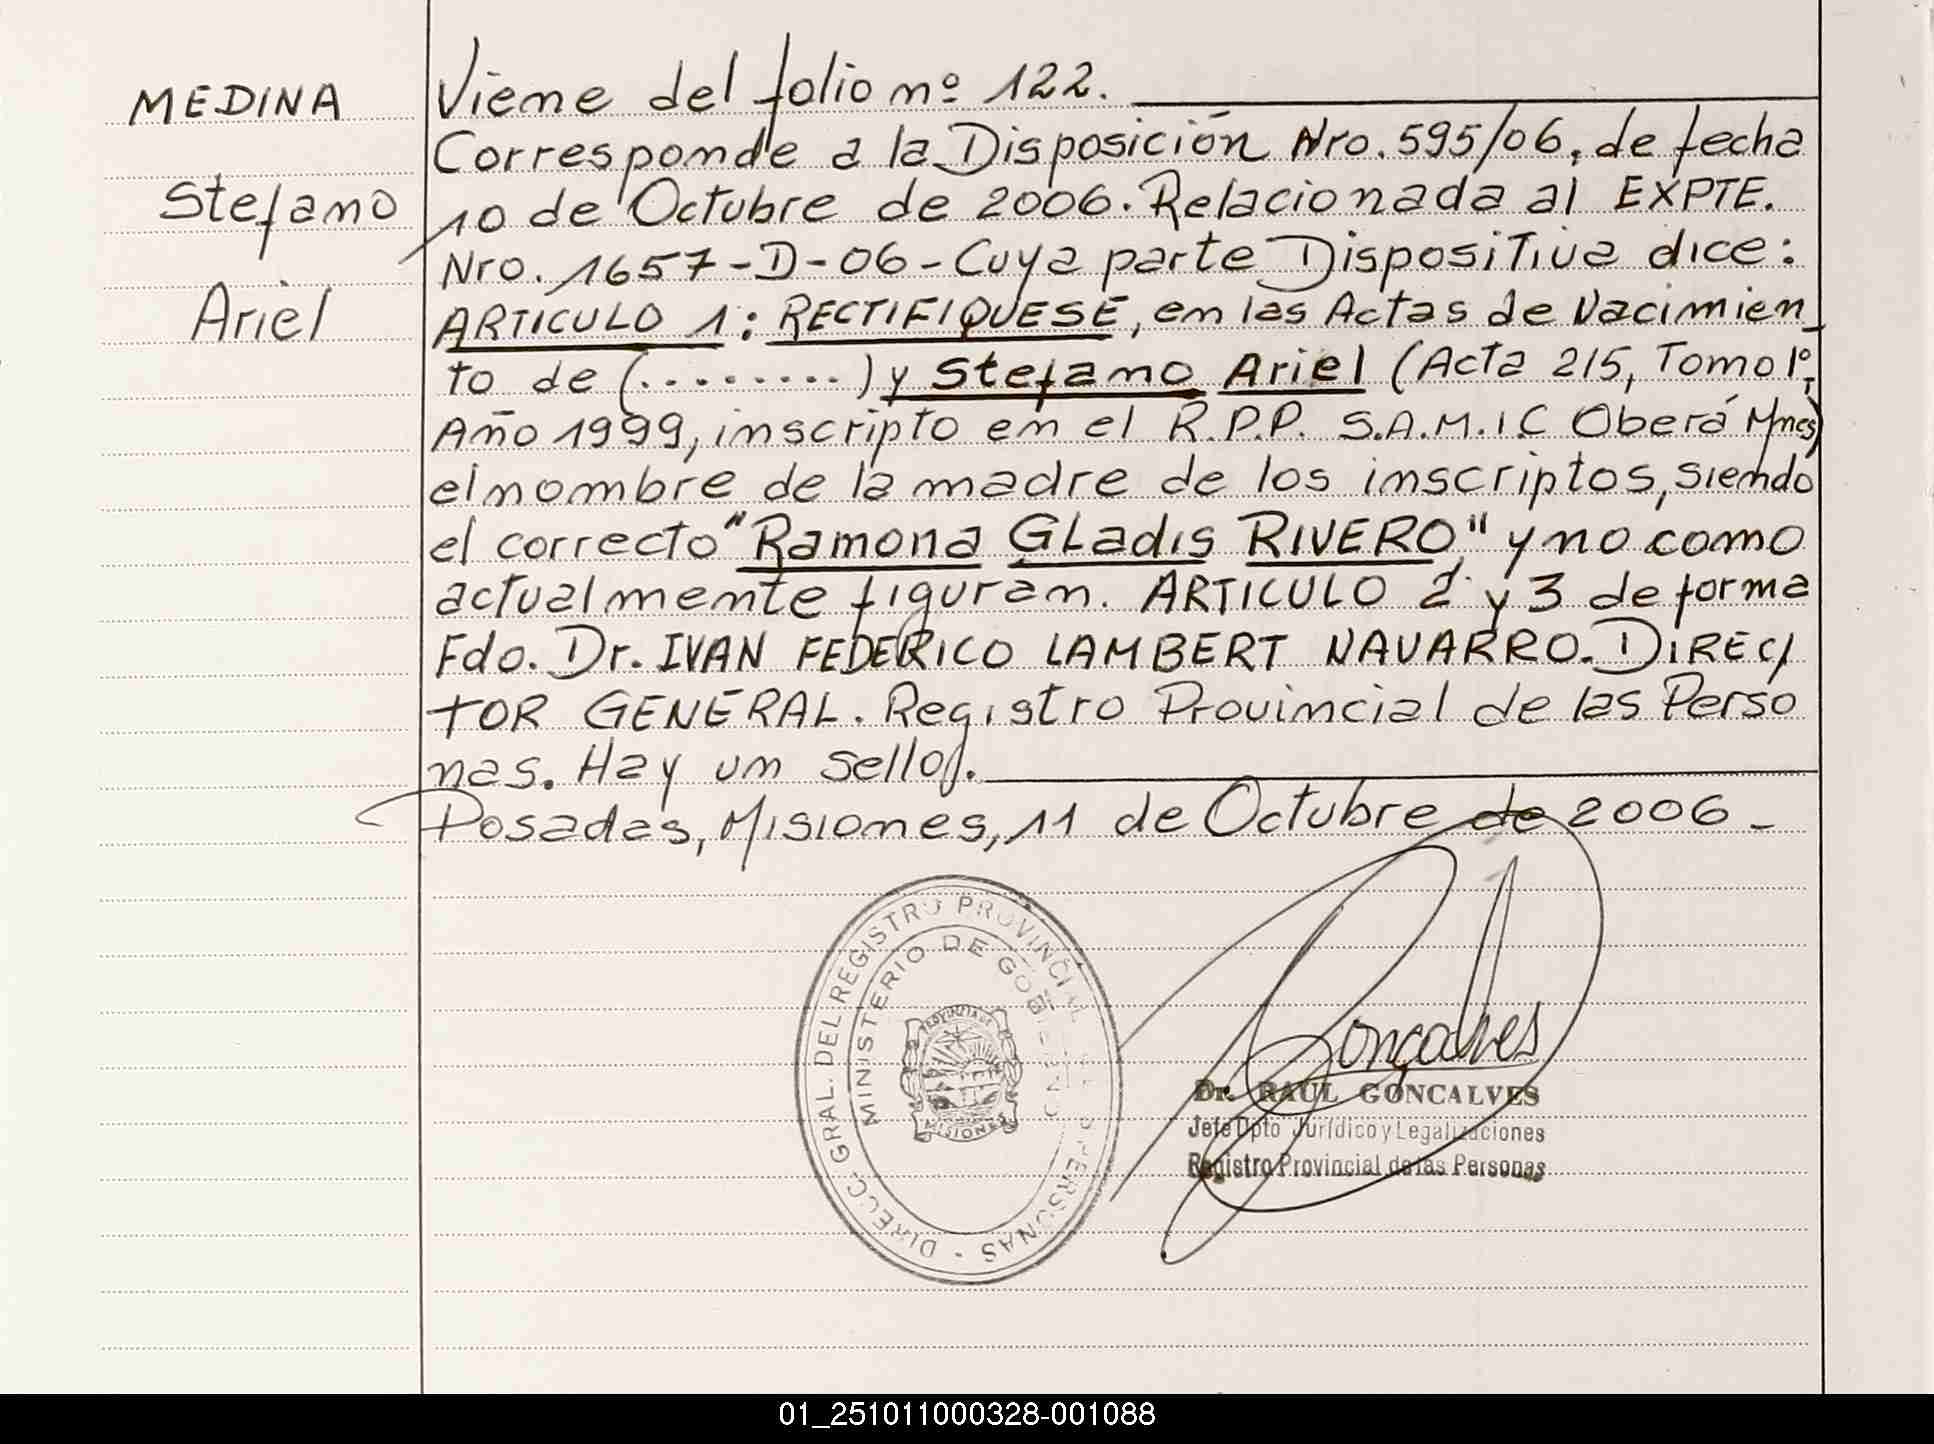 MEDINA
Stefano
Ariel
Viene del folio nº 122.
Corresponde a la Disposición Nro. 595/06, de fecha
10 de Octubre de 2006. Relacionada al EXPTE.
Nro. 1657-D-06- Cuya parte Dispositiva dice:
ARTICULO 1: RECTIFIQUESE, en las Actas de Nacimien_
to de (.........) y Stefano Ariel (Acta 215, Tomo 1º,
Año 1999, inscripto en el R.P.P. S.A.M.I.C Oberá Mnes)
el nombre de la madre de los inscriptos, siendo
el correcto "Ramona GLadis RIVERO" y no como
actualmente figuran. ARTICULO 2 y 3 de forma
Fdo. Dr. IVAN FEDERICO LAMBERT NAVARRO. DIREC/
TOR GENERAL. Registro Provincial de las Perso
nas. Hay un sello/.
Posadas, Misiones, 11 de Octubre de 2006 -
DIRECC. GRAL. DEL REGISTRO PROVINCIAL PERSONAS
MINISTERIO DE GOBIERNO
PROVINCIA DE
MISIONES
Gonçalves
Dr. RAUL GONCALVES
Jefe Dpto Jurídico y Legalizaciones
Registro Provincial de las Personas
01_251011000328-001088